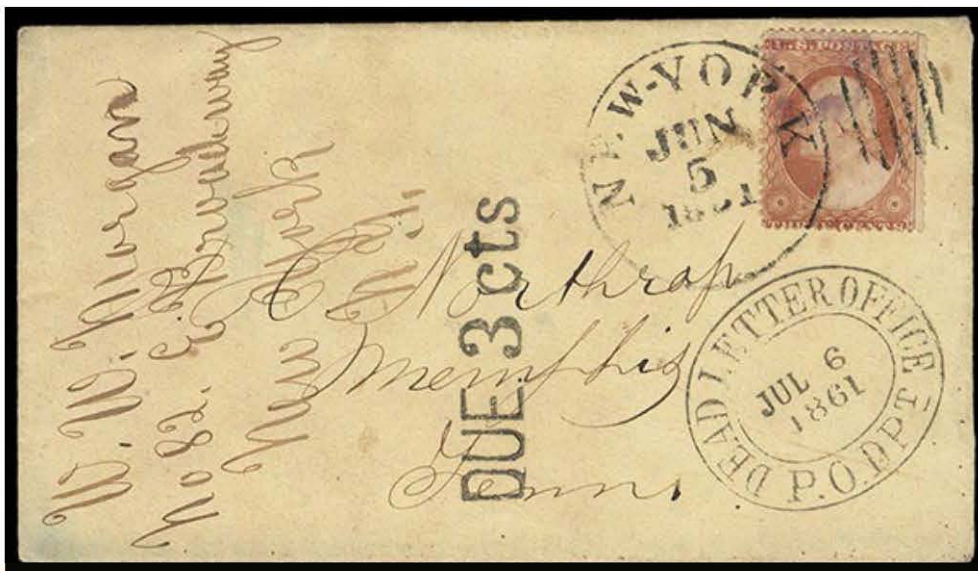 W. W. Morgan
No 82. E. Broadway
New York
N.Y.
NEW-YORK
JUN
5
1861
U.S. POSTAGE
DUE 3 cts
C Northrop
Memphis
Tenn.
DEAD LETTER OFFICE
JUL 6
1861
P.O. DPT